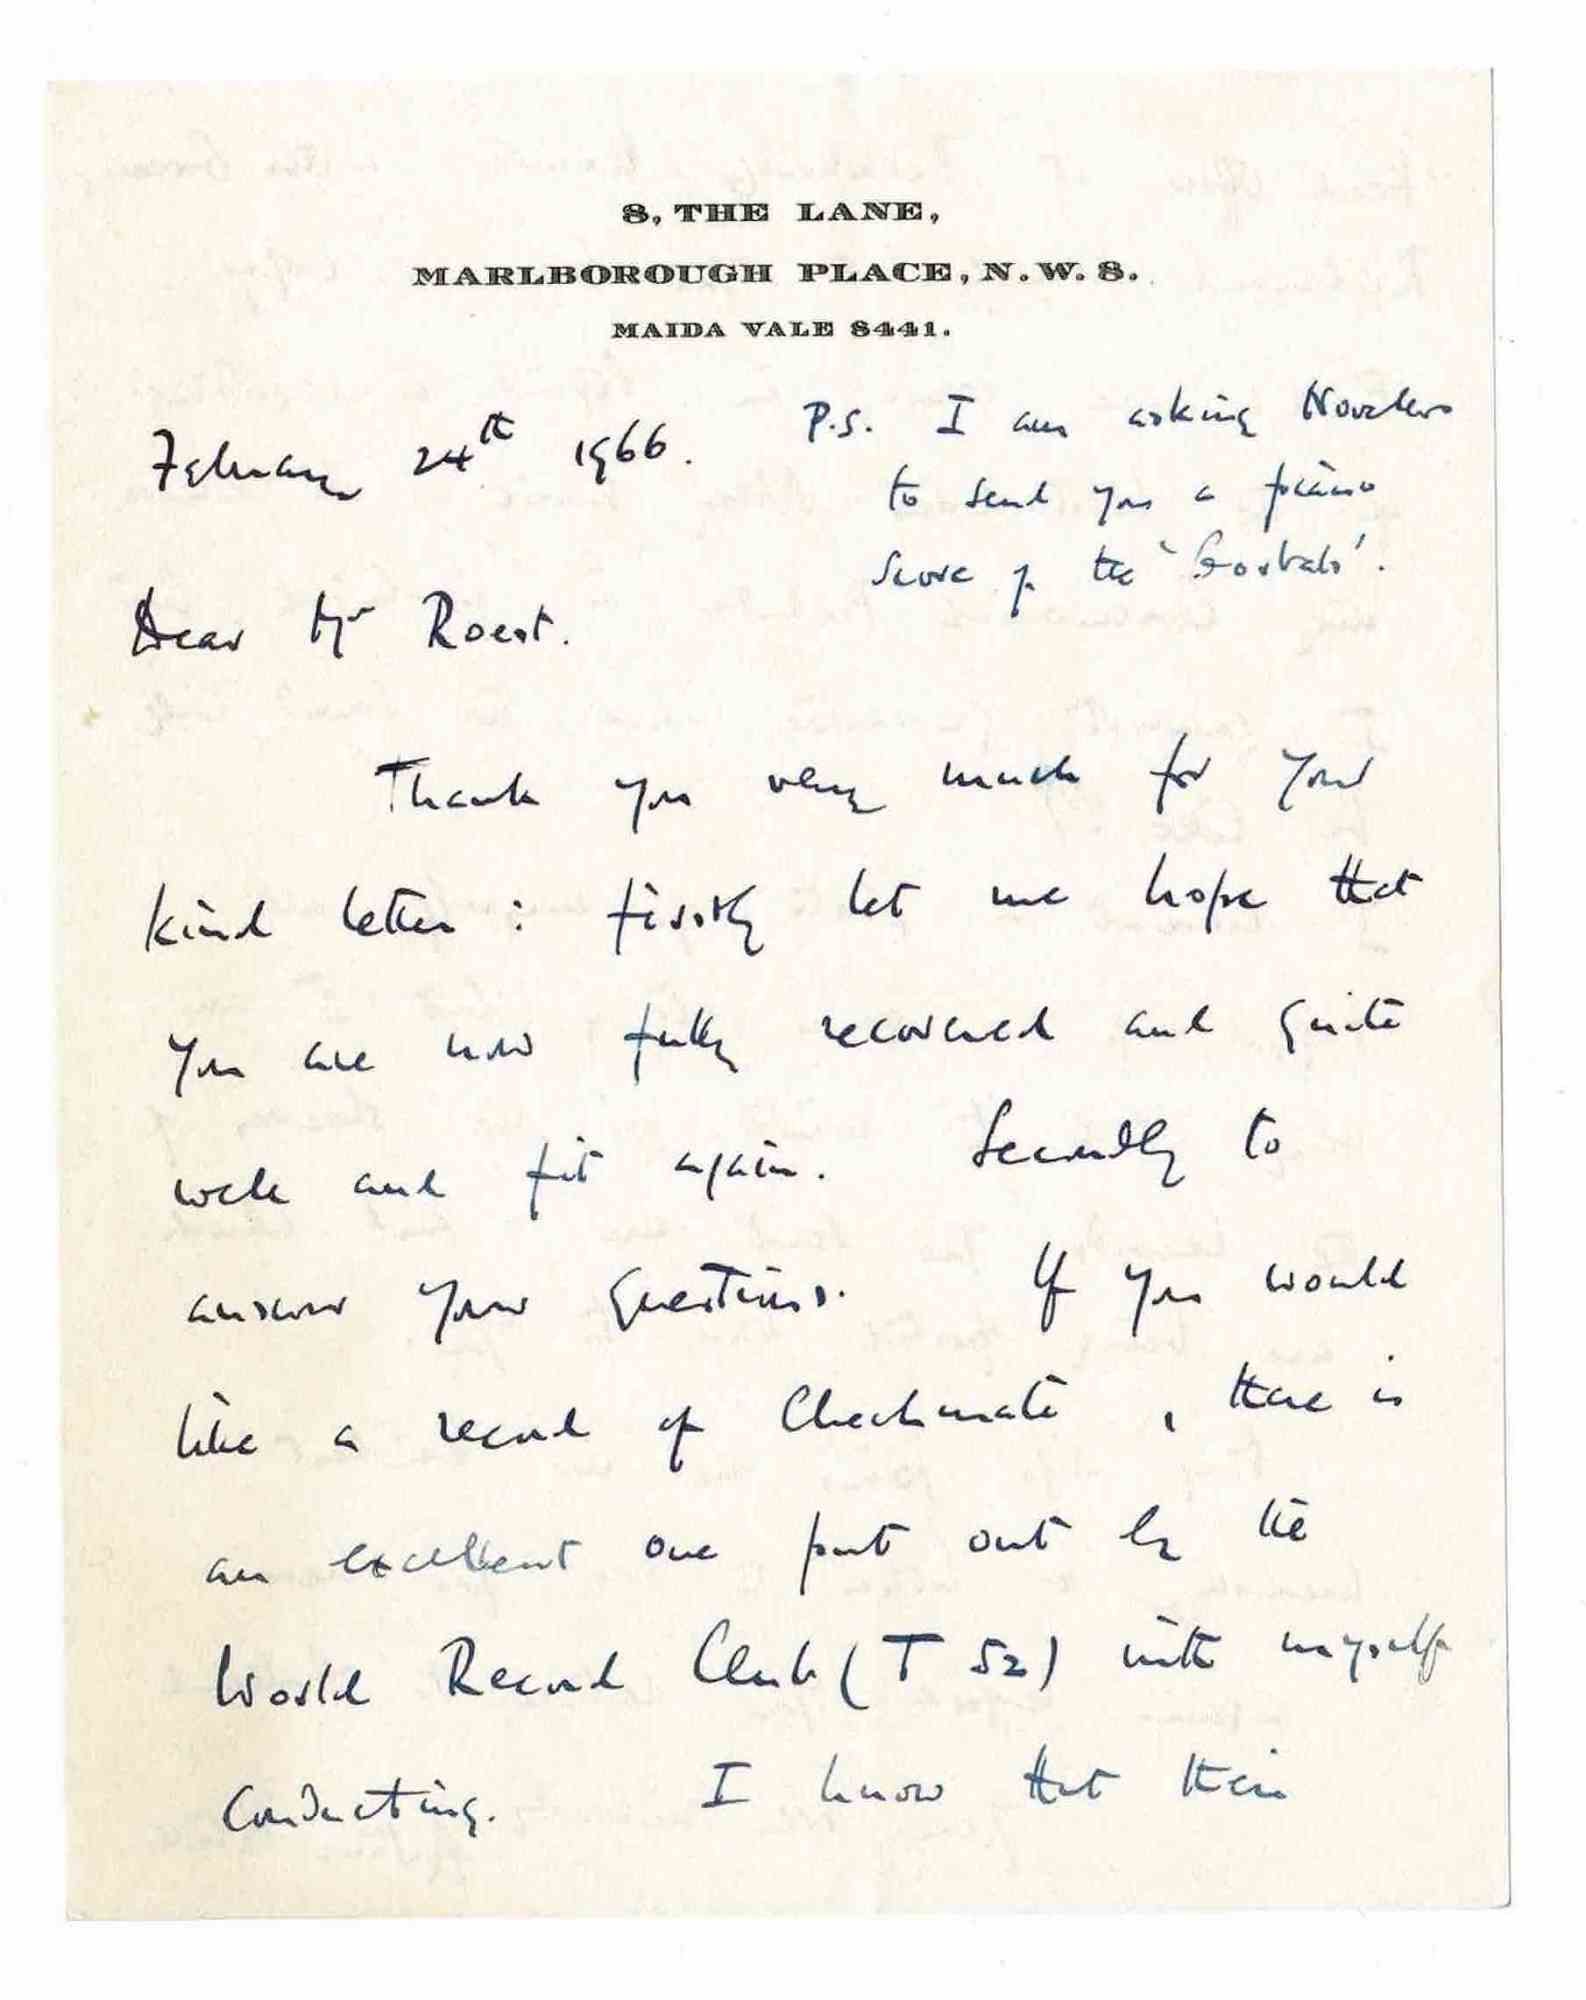 8, THE LANE,
MARLBOROUGH PLACE, N.W. 8.
MAIDA VALE 8441.
February 24th 1966.
P.S. I am asking Novellos
to send you a piano
score of the 'Gorbals'.
Dear Mr Roest.
Thank you very much for your
kind letter : firstly let me hope that
you are now fully recovered and quite
well and fit again. Secondly to
answer your questions. If you would
like a record of Checkmate, there is
an excellent one put out by the
World Record Club (T 52) with myself
conducting. I know that their